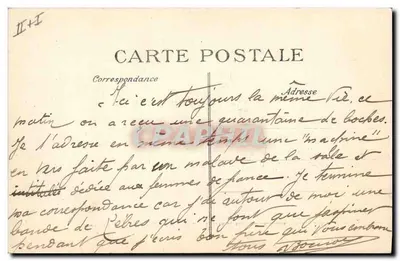 II + I
CARTE POSTALE
Correspondance
Adresse
Ici c'est toujours la même vie, ce
matin on a reçu une quarantaine de boches.
Je t'adresse en même temps une "machine"
en vers faite par un malade de la salle et
dédiée aux femmes de france. Je termine
ma correspondance car j'ai autour de moi une
bande de qui ne font que jaspiner
pendant que j'écris bon frère qui vous embrasse
tous